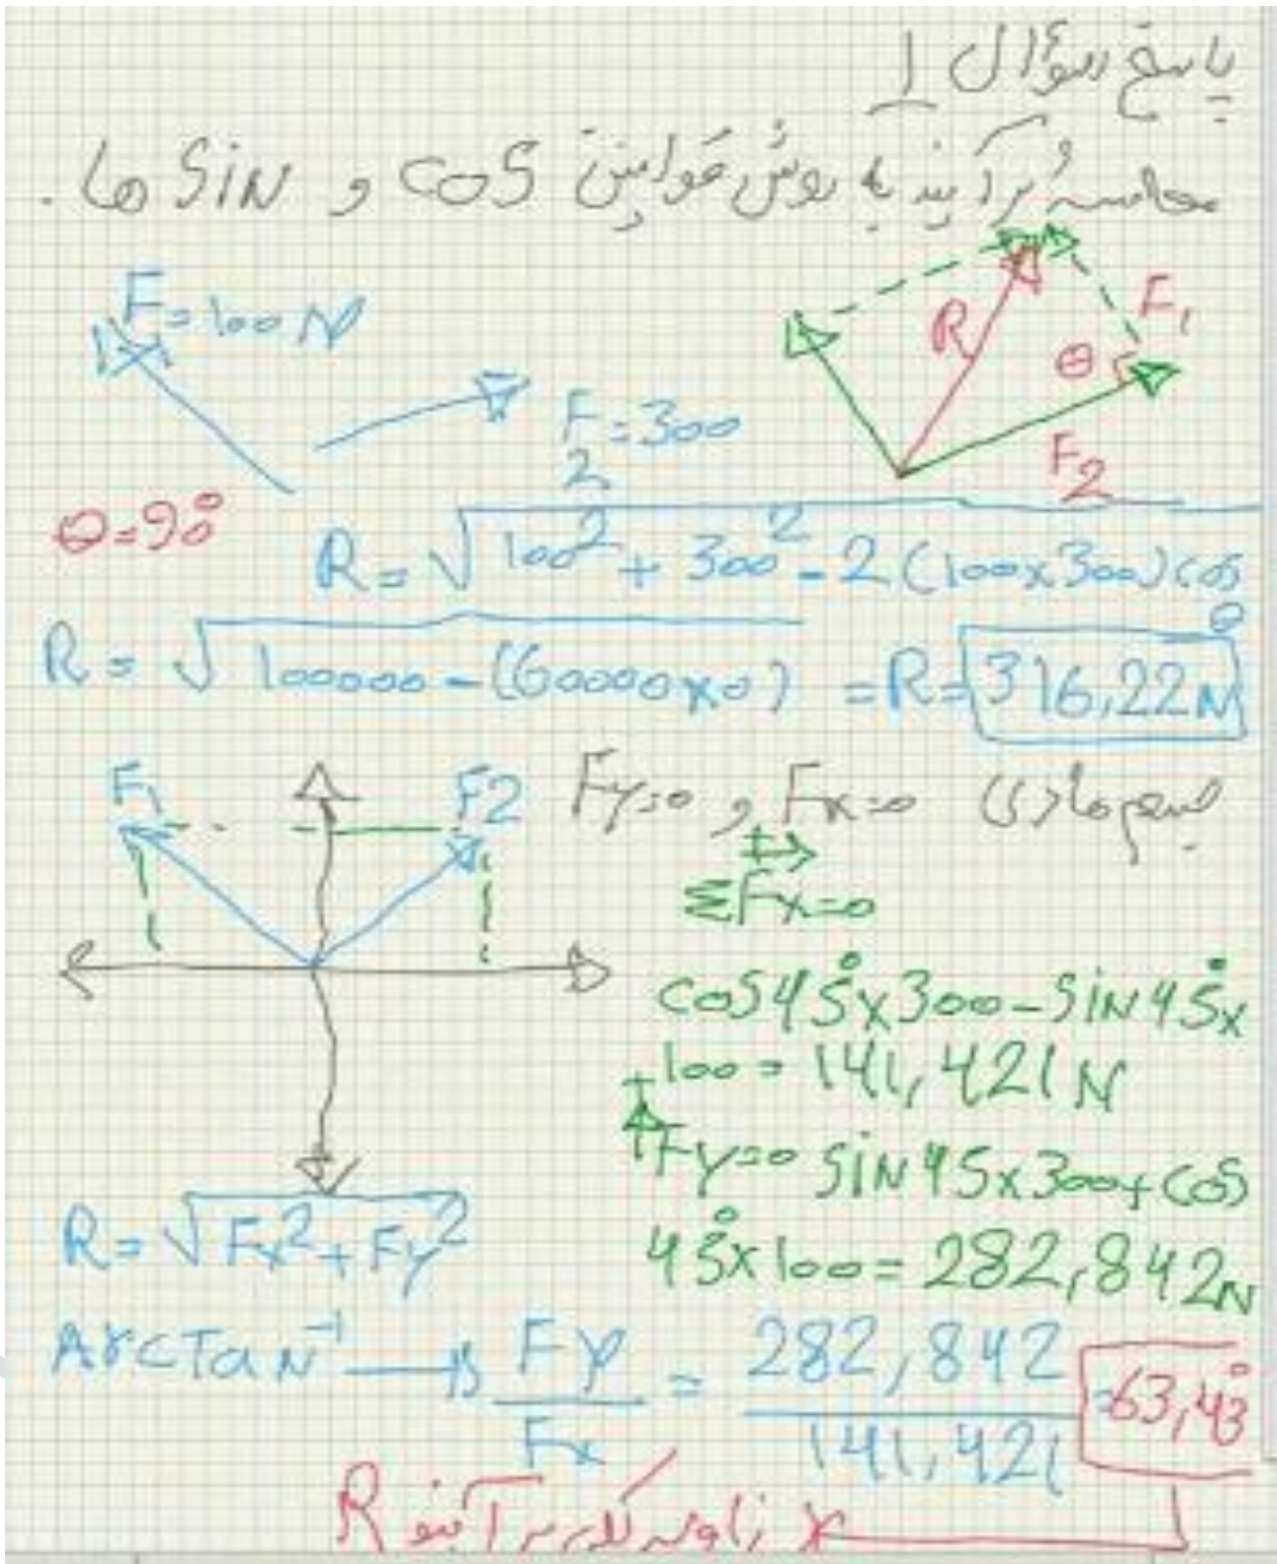 پاسخ سؤال 1
محاسبه برآیند به روش قوانین cos و SiN ها.
F=100N
F2=300
R
θ
F1
F2
θ=90°
R=√100²+300²-2(100x300)cos θ
R=√100000-(60000x0) =R=316,22N
F1
F2
Fy=0 و Fx=0
ΣFx=0
cos45°x300-SiN45°x
100=141,421N
+
Fy=0 SiN45x300+cos
45°x100=282,842N
R=√Fx²+Fy²
ArcTaN⁻¹ → Fy/Fx = 282,842/141,421 =63,43°
زاویه کلی برآیند R